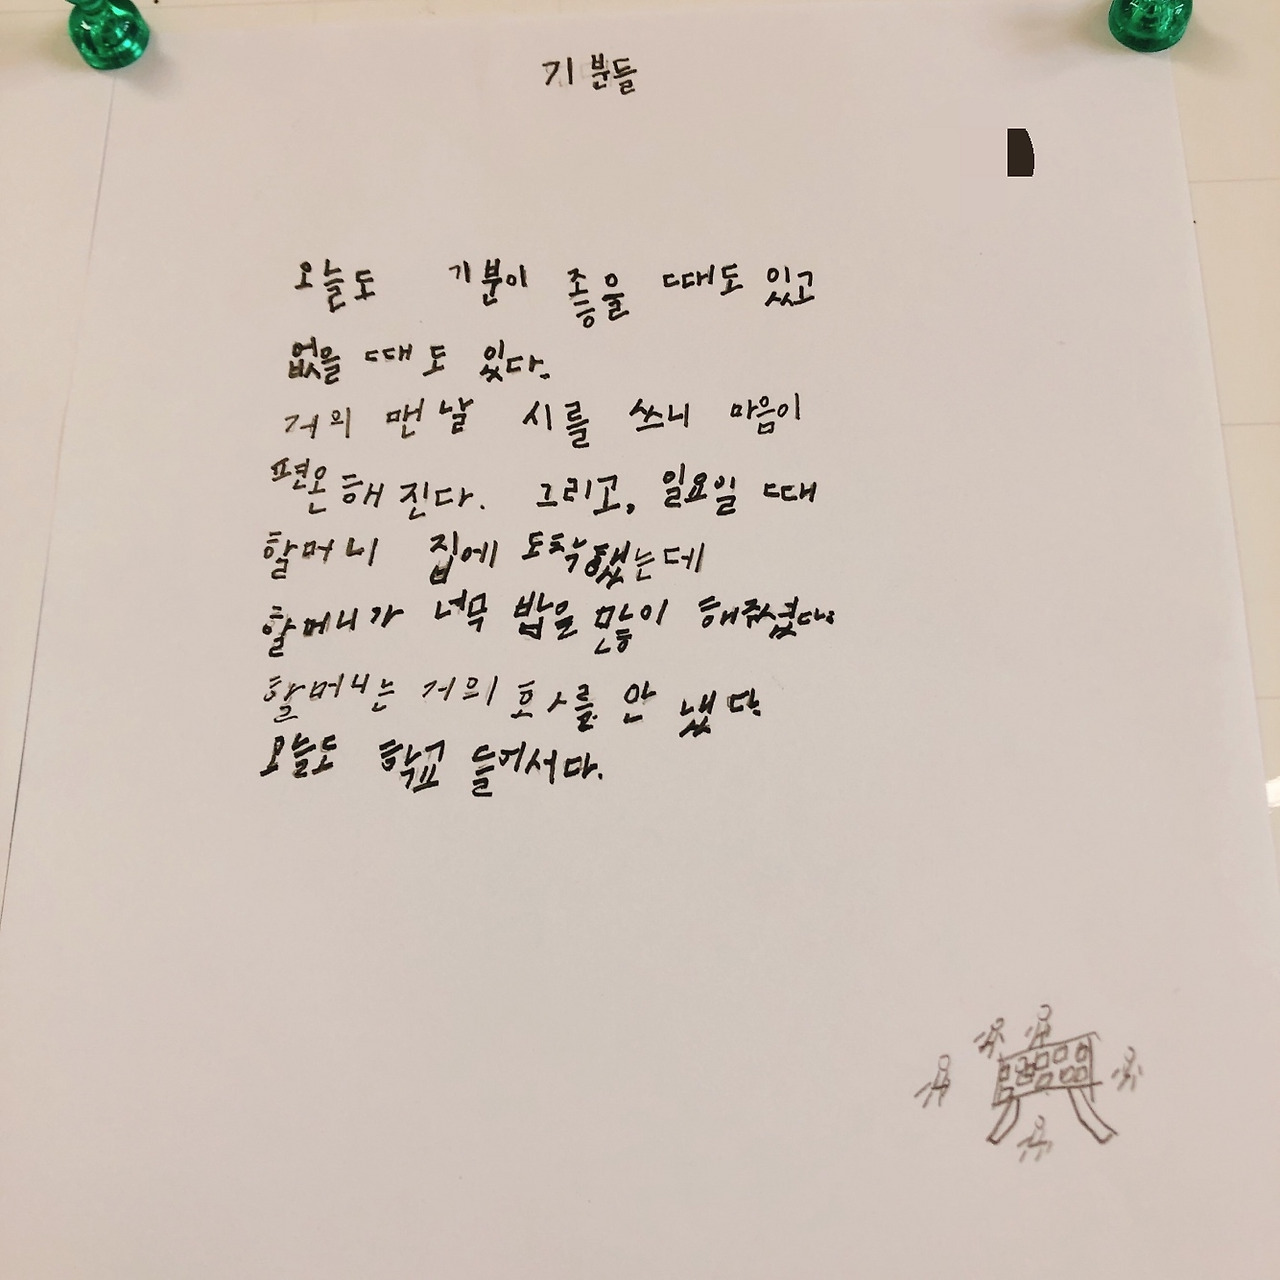 기분들
오늘도 기분이 좋을 때도 있고
없을 때도 있다.
거의 맨날 시를 쓰니 마음이
편온해 진다. 그리고, 일요일 때
할머니 집에 도착했는데
할머니가 너무 밥을 많이 해주셨다.
할머니는 거의 화를 안 냈다.
오늘도 학교 들어서다.